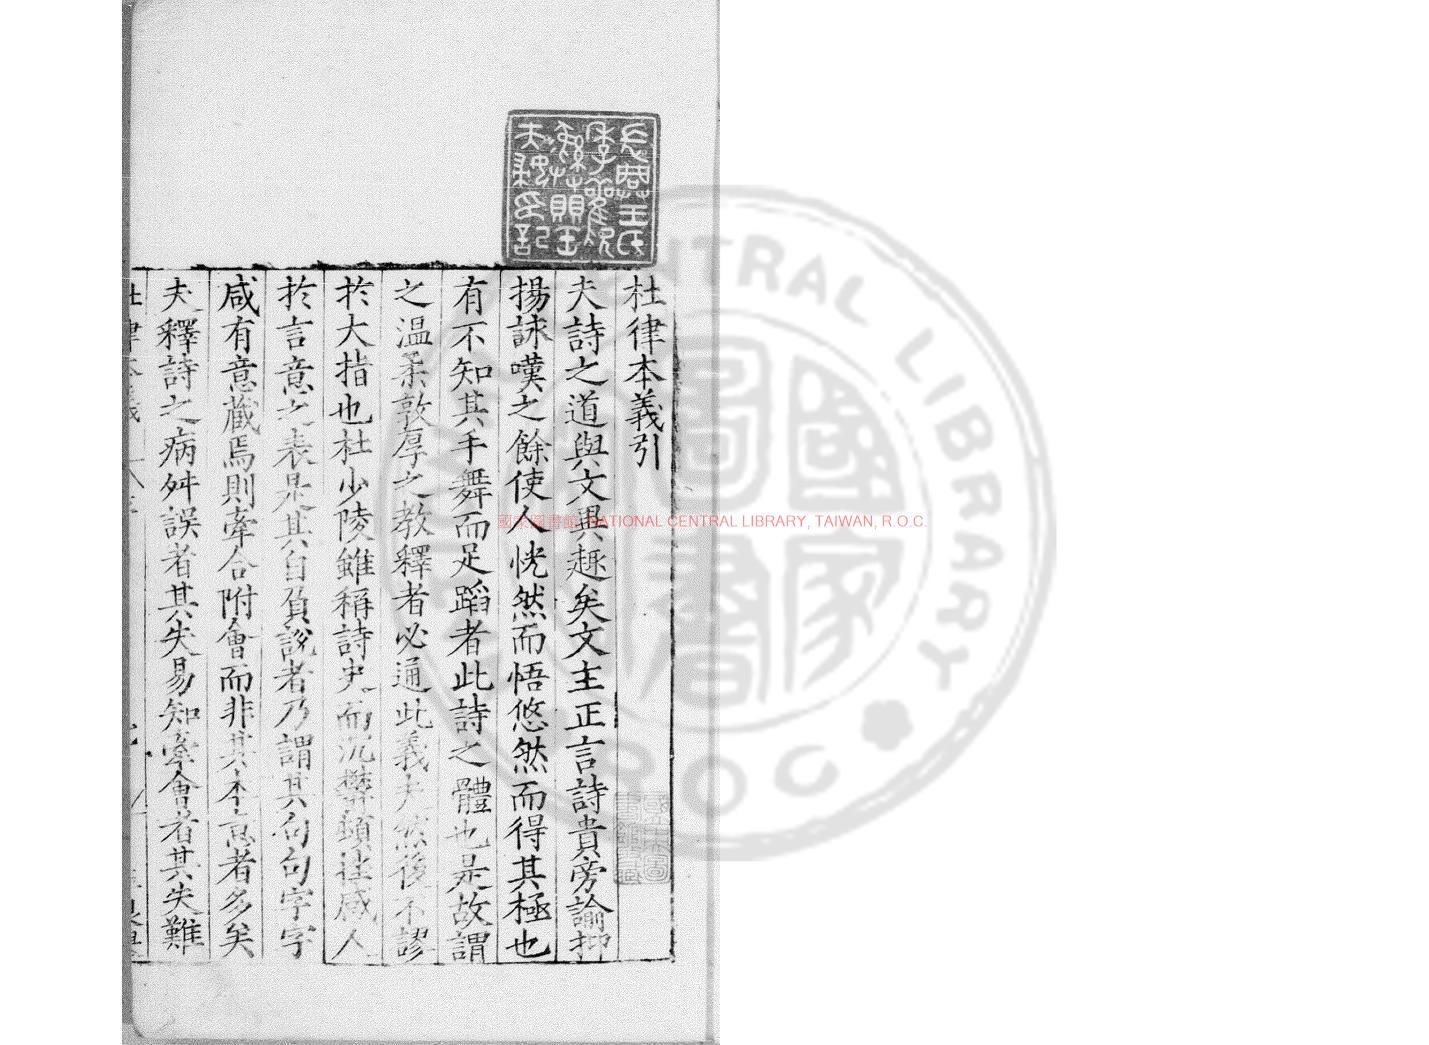 杜律本義引
夫詩之道與文異趣矣文主正言詩貴旁諭抑
揚詠嘆之餘使人恍然而悟悠然而得其極也
有不知其手舞而足蹈者此詩之體也是故謂
之温柔敦厚之教釋者必通此義夫然後不謬
扵大指也杜少陵雖稱詩史而沉欝頓挫感人
扵言意之表是其自負說者乃謂其句句字字
咸有意藏焉則牽合附會而非其本意者多矣
夫釋詩之病舛誤者其失易知牽會者其失難
杜律本義
國家圖書館 NATIONAL CENTRAL LIBRARY, TAIWAN, R.O.C.
CENTRAL LIBRARY
ROC
國家圖書館